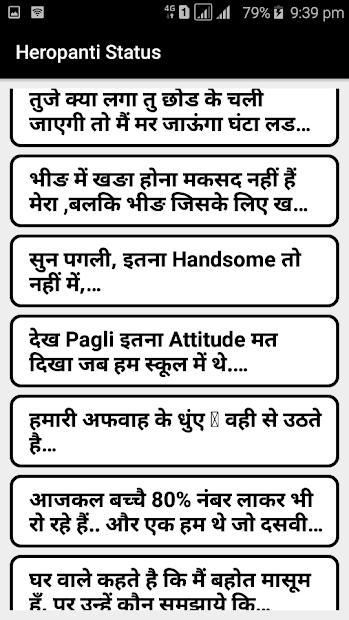 4G 1 79% 9:39 pm
Heropanti Status
तुजे क्या लगा तु छोड के चली
जाएगी तो मैं मर जाऊंगा घंटा लड...
भीङ में खङा होना मकसद नहीं हैं
मेरा ,बलकि भीङ जिसके लिए ख...
सुन पगली, इतना Handsome तो
नहीं में,...
देख Pagli इतना Attitude मत
दिखा जब हम स्कूल में थे....
हमारी अफवाह के धुंए वही से उठते
है...
आजकल बच्चै 80% नंबर लाकर भी
रो रहे हैं.. और एक हम थे जो दसवी...
घर वाले कहते है कि मैं बहोत मासूम
हूँ, पर उन्हें कौन समझाये कि...